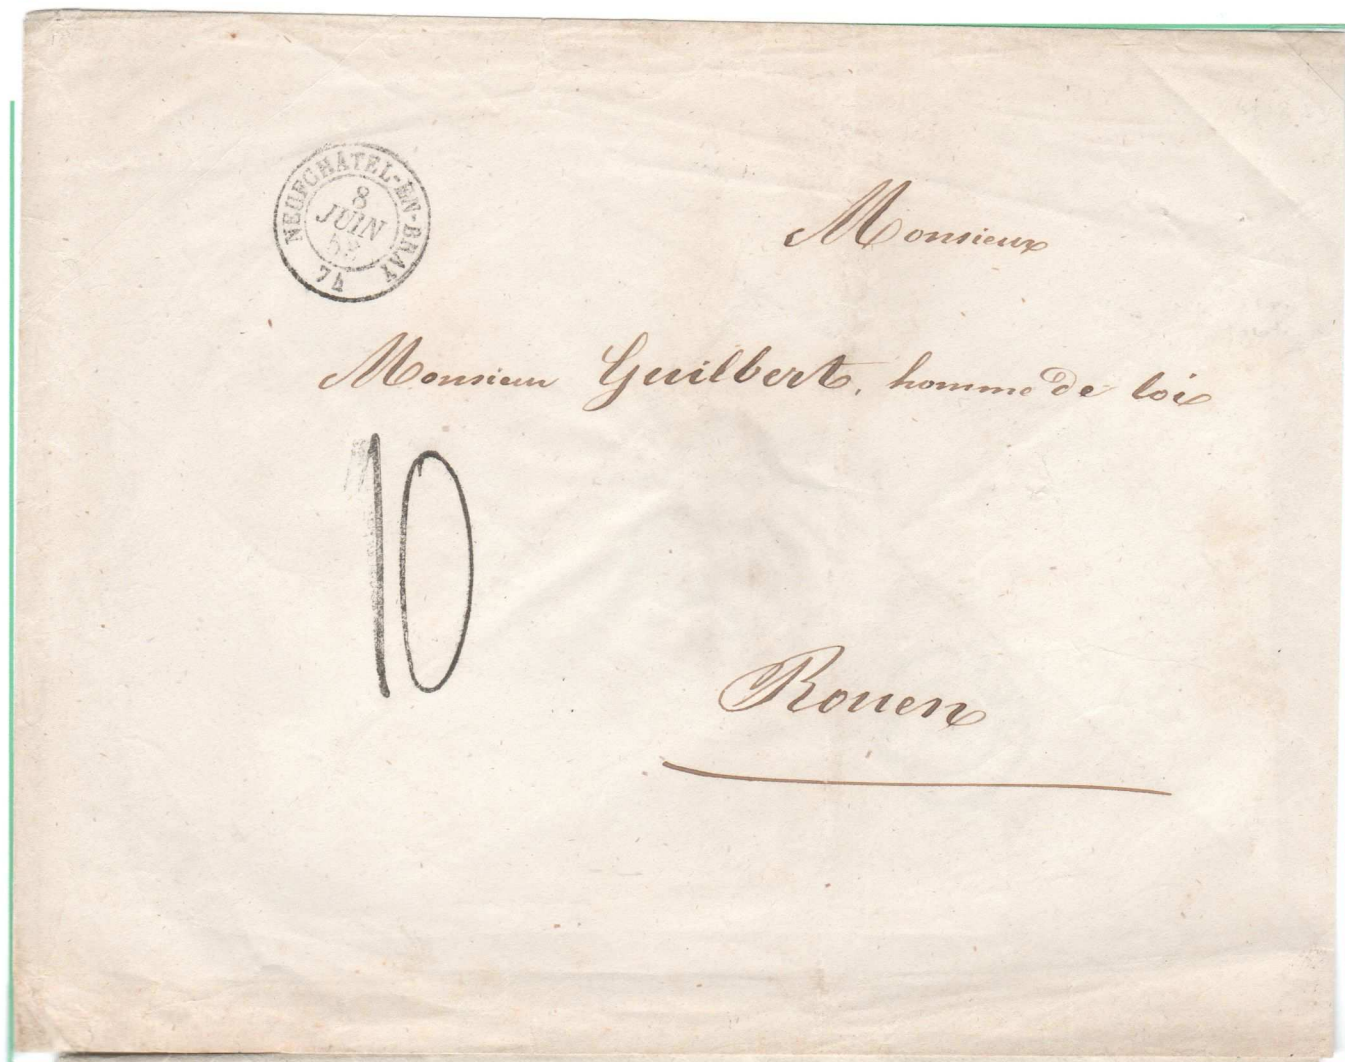 NEUFCHATEL-EN-BRAY
8
JUIN
52
74
Monsieur
Monsieur Guilbert, homme de loi
10
Rouen